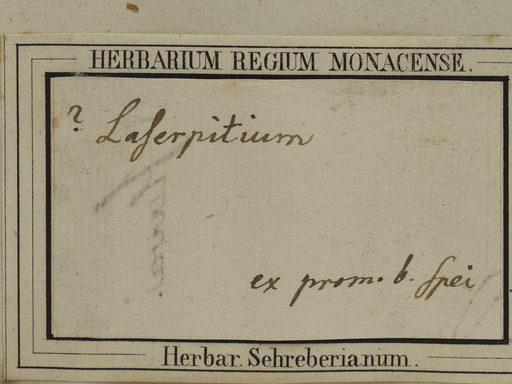 HERBARIUM REGIUM MONACENSE.
? Laserpitium
ex prom. b. Spei
Herbar. Schreberianum.